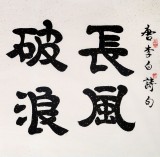 長風
破浪
唐李白詩句